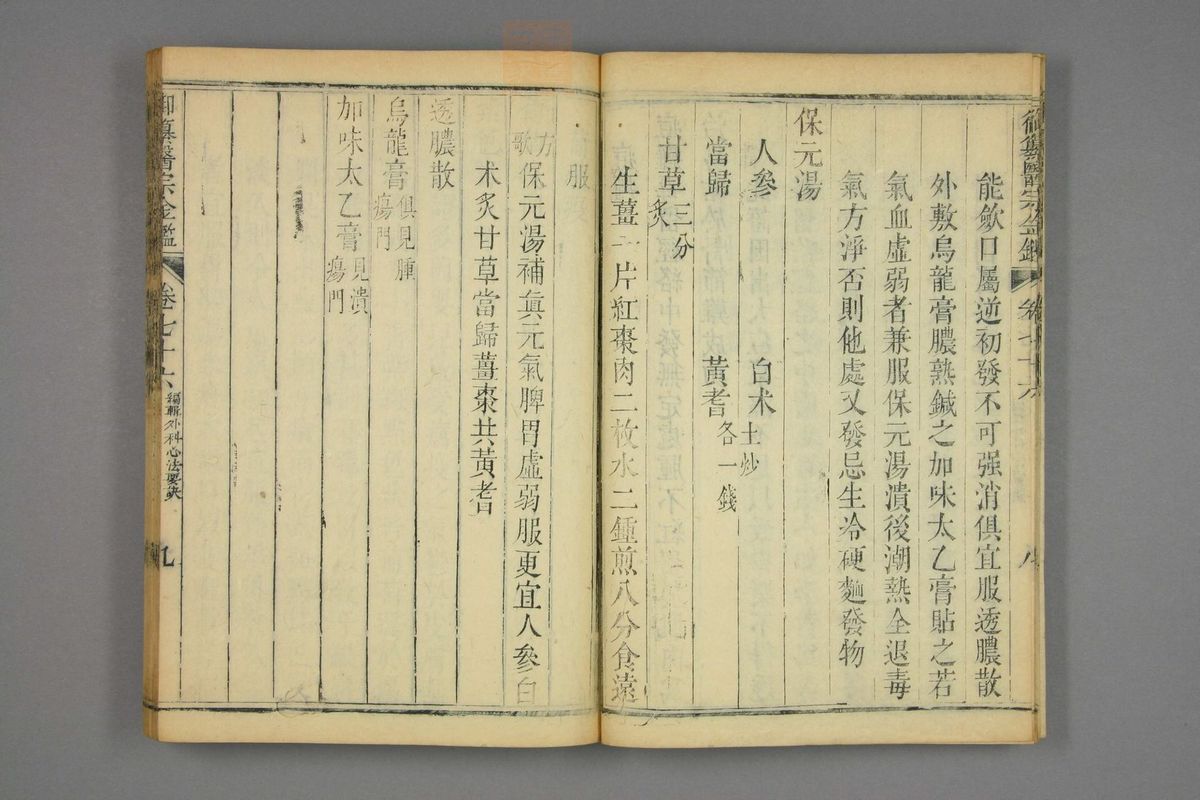 御纂醫宗金鑑 卷七十六 八
能歛口屬逆初發不可强消俱宜服透膿散
外敷烏龍膏膿熟鍼之加味太乙膏貼之若
氣血虛弱者兼服保元湯潰後潮熱全退毒
氣方淨否則他處又發忌生冷硬麵發物
保元湯
人參 白朮土炒
當歸 黃耆各一錢
甘草炙三分
生薑一片紅棗肉二枚水二鍾煎八分食遠
服
方歌 保元湯補眞元氣脾胃虛弱服更宜人參白
朮炙甘草當歸薑棗共黃耆
透膿散
烏龍膏俱見腫瘍門
加味太乙膏見潰瘍門
御纂醫宗金鑑 卷七十六 編輯外科心法要訣 九